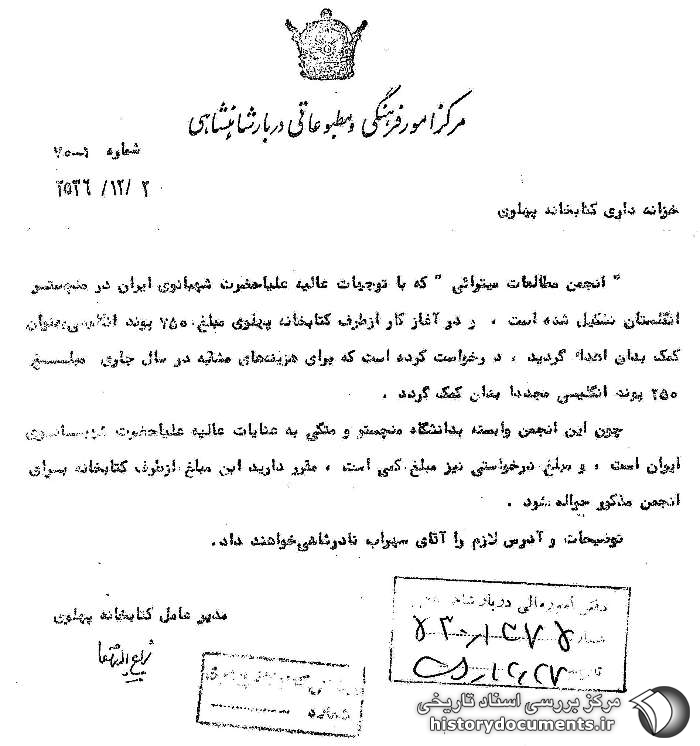 مرکز امور فرهنگی و مطبوعاتی دربار شاهنشاهی
شماره
۲۵۳۶/۱۲/۲
خزانه داری کتابخانه پهلوی
" انجمن مطالعات میترائی " که با توجهات عالیه علیاحضرت شهبانوی ایران در منچستر
انگلستان تشکیل شده است ، و در آغاز کار ازطرف کتابخانه پهلوی مبلغ ۲۵۰ پوند انگلیسی بعنوان
کمک بدان اهداء گردید ، درخواست کرده است که برای هزینه‌های مشابه در سال جاری مبلـــــغ
۲۵۰ پوند انگلیسی مجددا بدان کمک گردد .
چون این انجمن وابسته بدانشگاه منچستر و متکی به عنایات عالیه علیاحضرت شهبـــانـوی
ایران است ، و مبلغ درخواستی نیز مبلغ کمی است ، مقرر دارید این مبلغ ازطرف کتابخانه بــرای
انجمن مذکور حواله شود .
توضیحات و آدرس لازم را آقای سهراب نادرشاهی‌خواهند داد.
مدیر عامل کتابخانه پهلوی
دفتر امور مالی دربار
شماره
تاریخ
شماره
مرکز بررسی اسناد تاریخی
historydocuments.ir